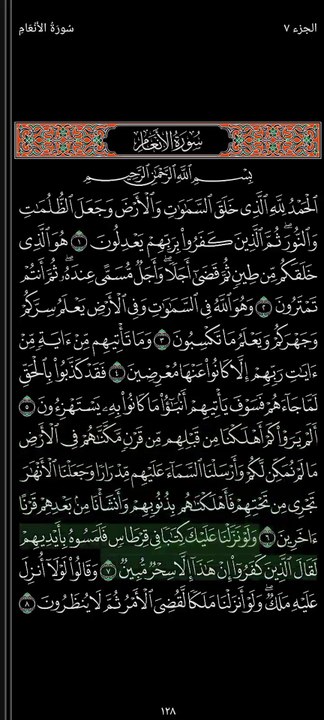 الجزء ٧
سُورَةُ الأَنْعَامِ
سُورَةُ الأَنْعَام
بِسْمِ اللَّهِ الرَّحْمَٰنِ الرَّحِيمِ
الْحَمْدُ لِلَّهِ الَّذِي خَلَقَ السَّمَٰوَٰتِ وَالْأَرْضَ وَجَعَلَ الظُّلُمَٰتِ
وَالنُّورَ ۖ ثُمَّ الَّذِينَ كَفَرُوا بِرَبِّهِمْ يَعْدِلُونَ ١ هُوَ الَّذِي
خَلَقَكُم مِّن طِينٍ ثُمَّ قَضَىٰٓ أَجَلًا ۖ وَأَجَلٌ مُّسَمًّى عِندَهُۥ ۖ ثُمَّ أَنتُمْ
تَمْتَرُونَ ٢ وَهُوَ اللَّهُ فِي السَّمَٰوَٰتِ وَفِي الْأَرْضِ ۖ يَعْلَمُ سِرَّكُمْ
وَجَهْرَكُمْ وَيَعْلَمُ مَا تَكْسِبُونَ ٣ وَمَا تَأْتِيهِم مِّنْ ءَايَةٍ مِّنْ
ءَايَٰتِ رَبِّهِمْ إِلَّا كَانُوا عَنْهَا مُعْرِضِينَ ٤ فَقَدْ كَذَّبُوا بِالْحَقِّ
لَمَّا جَآءَهُمْ ۖ فَسَوْفَ يَأْتِيهِمْ أَنۢبَٰٓؤُا مَا كَانُوا بِهِۦ يَسْتَهْزِءُونَ ٥
أَلَمْ يَرَوْا كَمْ أَهْلَكْنَا مِن قَبْلِهِم مِّن قَرْنٍ مَّكَّنَّٰهُمْ فِي الْأَرْضِ
مَا لَمْ نُمَكِّن لَّكُمْ وَأَرْسَلْنَا السَّمَآءَ عَلَيْهِم مِّدْرَارًا وَجَعَلْنَا الْأَنْهَٰرَ
تَجْرِي مِن تَحْتِهِمْ فَأَهْلَكْنَٰهُم بِذُنُوبِهِمْ وَأَنشَأْنَا مِنۢ بَعْدِهِمْ قَرْنًا
ءَاخَرِينَ ٦ وَلَوْ نَزَّلْنَا عَلَيْكَ كِتَٰبًا فِي قِرْطَاسٍ فَلَمَسُوهُ بِأَيْدِيهِمْ
لَقَالَ الَّذِينَ كَفَرُوٓا إِنْ هَٰذَآ إِلَّا سِحْرٌ مُّبِينٌ ٧ وَقَالُوا لَوْلَآ أُنزِلَ
عَلَيْهِ مَلَكٌ ۖ وَلَوْ أَنزَلْنَا مَلَكًا لَّقُضِيَ الْأَمْرُ ثُمَّ لَا يُنظَرُونَ ٨
١٢٨